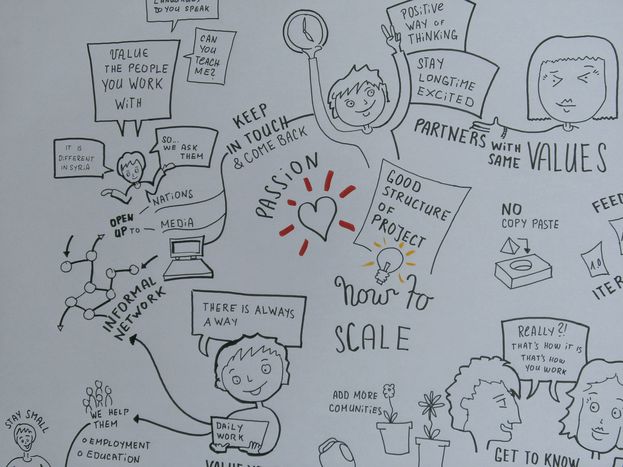 LANGUAGES
DO YOU SPEAK
CAN
YOU
TEACH
ME?
VALUE
THE PEOPLE
YOU WORK
WITH
POSITIVE
WAY OF
THINKING
STAY
LONGTIME
EXCITED
KEEP
IN TOUCH
& COME BACK
PARTNERS WITH
SAME VALUES
IT IS
DIFFERENT
IN SYRIA
SO...
WE ASK
THEM
OPEN
UP TO
NATIONS
MEDIA
PASSION
GOOD
STRUCTURE
OF
PROJECT
NO
COPY PASTE
FEED
1.0
ITER
INFORMAL
NETWORK
HOW TO
SCALE
THERE IS ALWAYS
A WAY
REALLY?!
THAT'S HOW IT IS
THAT'S HOW
YOU WORK
ADD MORE
COMUNITIES
STAY SMALL
WE HELP
THEM
EMPLOYMENT
EDUCATION
DAILY
WORK
GET TO KNOW